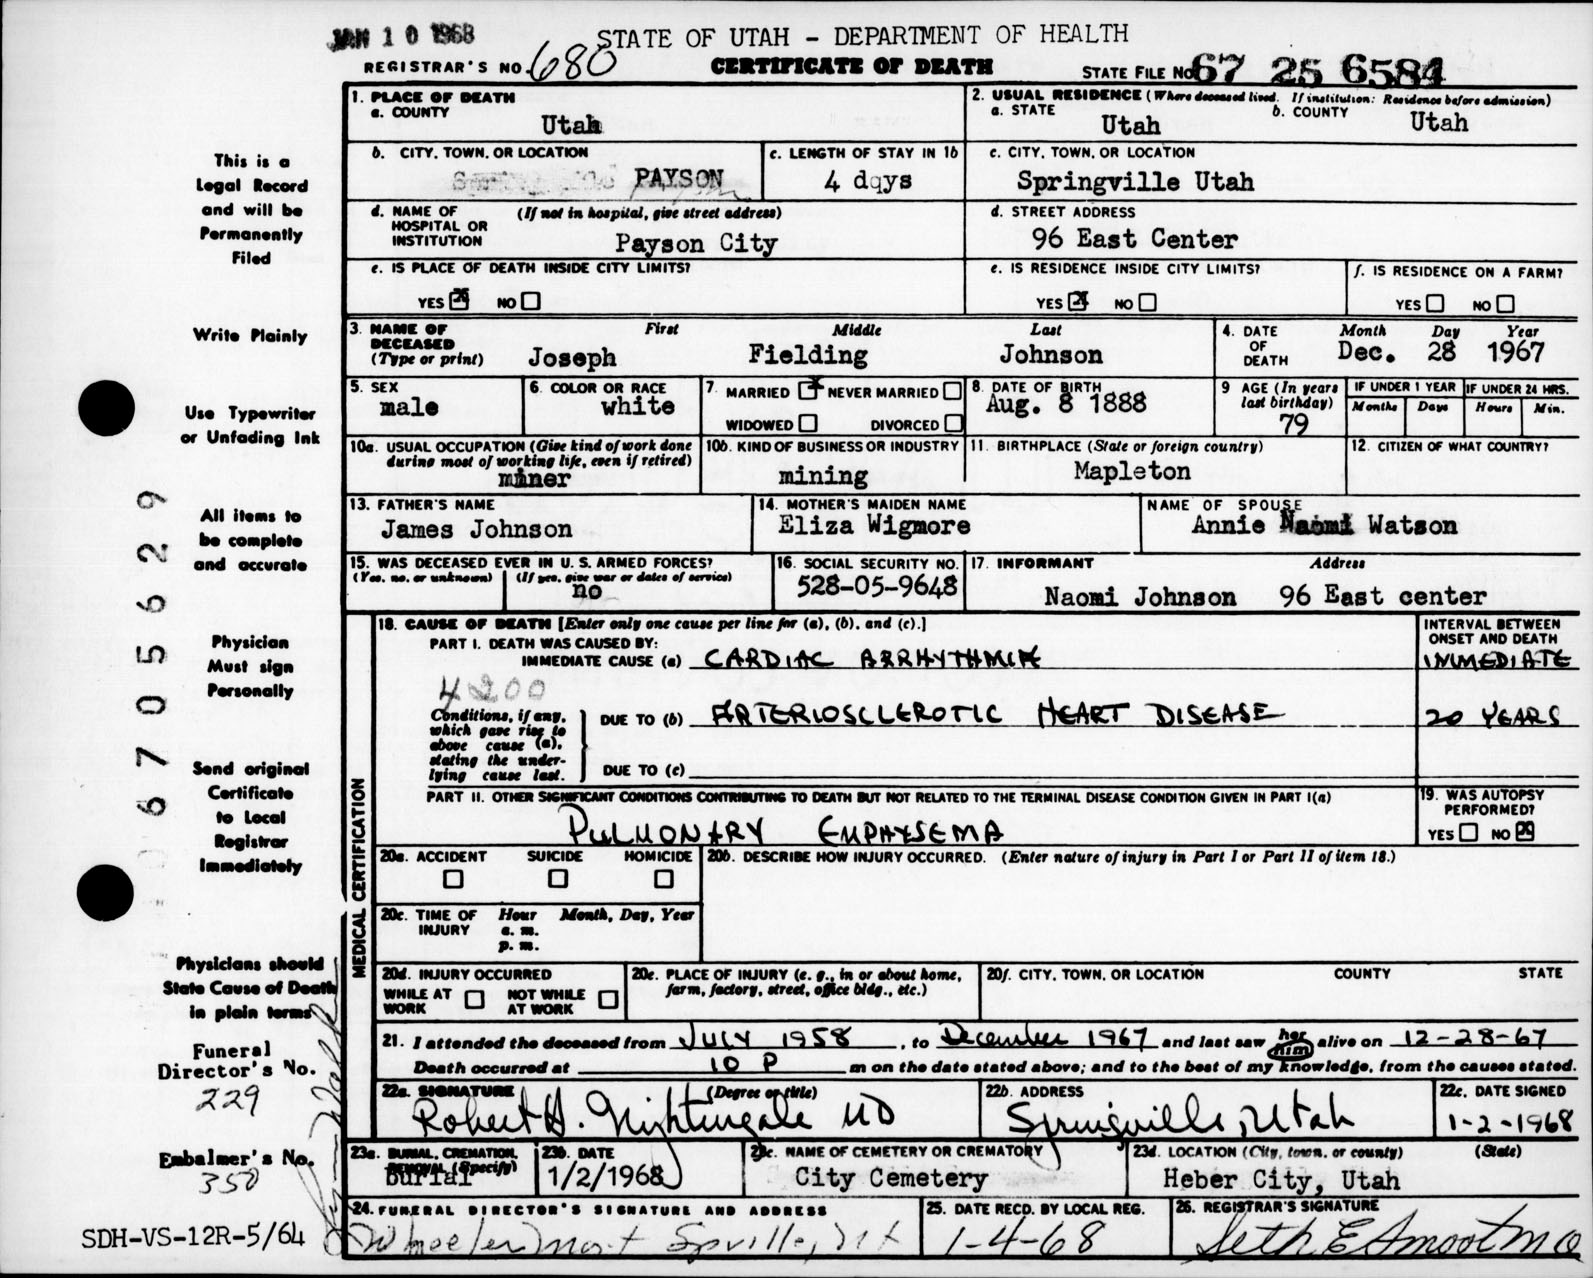 JAN 10 1968
STATE OF UTAH - DEPARTMENT OF HEALTH
REGISTRAR'S NO. 680
CERTIFICATE OF DEATH
STATE FILE NO. 67 25 6584
1. PLACE OF DEATH
a. COUNTY
Utah
2. USUAL RESIDENCE (Where deceased lived. If institution: Residence before admission)
a. STATE
Utah
b. COUNTY
Utah
b. CITY, TOWN, OR LOCATION
PAYSON
c. LENGTH OF STAY IN 1b
4 dqys
c. CITY, TOWN, OR LOCATION
Springville Utah
d. NAME OF HOSPITAL OR INSTITUTION
(If not in hospital, give street address)
Payson City
d. STREET ADDRESS
96 East Center
e. IS PLACE OF DEATH INSIDE CITY LIMITS?
YES X NO
e. IS RESIDENCE INSIDE CITY LIMITS?
YES X NO
f. IS RESIDENCE ON A FARM?
YES NO
3. NAME OF DECEASED
(Type or print)
First Middle Last
Joseph Fielding Johnson
4. DATE OF DEATH
Month Day Year
Dec. 28 1967
5. SEX
male
6. COLOR OR RACE
white
7. MARRIED X NEVER MARRIED
WIDOWED DIVORCED
8. DATE OF BIRTH
Aug. 8 1888
9 AGE (In years last birthday)
79
IF UNDER 1 YEAR
Months Days
IF UNDER 24 HRS.
Hours Min.
10a. USUAL OCCUPATION (Give kind of work done during most of working life, even if retired)
miner
10b. KIND OF BUSINESS OR INDUSTRY
mining
11. BIRTHPLACE (State or foreign country)
Mapleton
12. CITIZEN OF WHAT COUNTRY?
13. FATHER'S NAME
James Johnson
14. MOTHER'S MAIDEN NAME
Eliza Wigmore
NAME OF SPOUSE
Annie Naomi Watson
15. WAS DECEASED EVER IN U. S. ARMED FORCES?
(Yes, no, or unknown) (If yes, give war or dates of service)
no
16. SOCIAL SECURITY NO.
528-05-9648
17. INFORMANT Address
Naomi Johnson 96 East center
MEDICAL CERTIFICATION
18. CAUSE OF DEATH [Enter only one cause per line for (a), (b), and (c).]
INTERVAL BETWEEN ONSET AND DEATH
PART I. DEATH WAS CAUSED BY:
IMMEDIATE CAUSE (a) CARDIAC ARRHYTHMIA
IMMEDIATE
4200
Conditions, if any, which gave rise to above cause (a), stating the underlying cause last.
DUE TO (b) ARTERIOSCLEROTIC HEART DISEASE
20 YEARS
DUE TO (c)
PART II. OTHER SIGNIFICANT CONDITIONS CONTRIBUTING TO DEATH BUT NOT RELATED TO THE TERMINAL DISEASE CONDITION GIVEN IN PART I(a)
PULMONARY EMPHYSEMA
19. WAS AUTOPSY PERFORMED?
YES NO X
20a. ACCIDENT SUICIDE HOMICIDE
20b. DESCRIBE HOW INJURY OCCURRED. (Enter nature of injury in Part I or Part II of item 18.)
20c. TIME OF INJURY
Hour Month, Day, Year
a. m.
p. m.
20d. INJURY OCCURRED
WHILE AT WORK NOT WHILE AT WORK
20e. PLACE OF INJURY (e. g., in or about home, farm, factory, street, office bldg., etc.)
20f. CITY, TOWN, OR LOCATION COUNTY STATE
21. I attended the deceased from JULY 1958, to December 1967 and last saw her him alive on 12-28-67
Death occurred at 10 P m on the date stated above; and to the best of my knowledge, from the causes stated.
22a. SIGNATURE (Degree or title)
Robert H. Nightingale MD
22b. ADDRESS
Springville, Utah
22c. DATE SIGNED
1-2-1968
23a. BURIAL, CREMATION, REMOVAL (Specify)
Burial
23b. DATE
1/2/1968
23c. NAME OF CEMETERY OR CREMATORY
City Cemetery
23d. LOCATION (City, town, or county) (State)
Heber City, Utah
24. FUNERAL DIRECTOR'S SIGNATURE AND ADDRESS
Wheeler Mort Spville, Ut
25. DATE RECD. BY LOCAL REG.
1-4-68
26. REGISTRAR'S SIGNATURE
Seth E Smoot MD
This is a
Legal Record
and will be
Permanently
Filed
Write Plainly
Use Typewriter
or Unfading Ink
All items to
be complete
and accurate
Physician
Must sign
Personally
Send original
Certificate
to Local
Registrar
Immediately
Physicians should
State Cause of Death
in plain terms
Funeral
Director's No.
229
Embalmer's No.
350
SDH-VS-12R-5/64
6705629